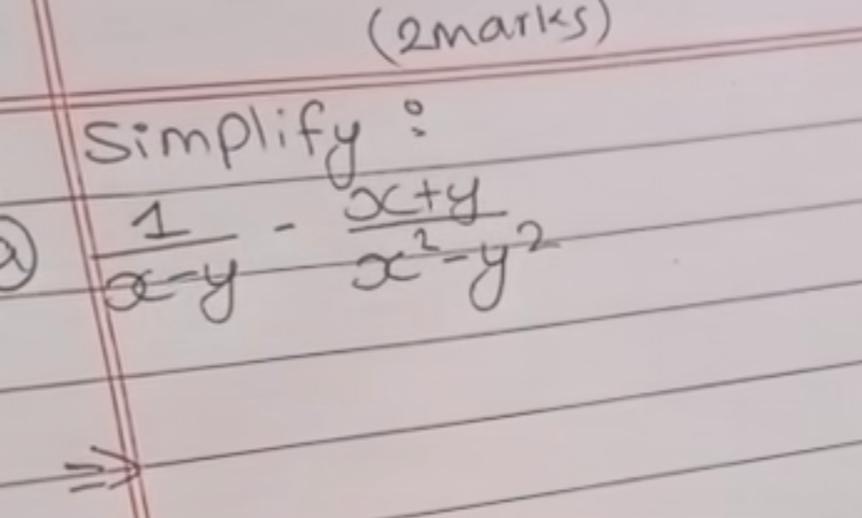 (2marks)
Simplify :
a) 1/x-y - x+y/x²-y²
⇒